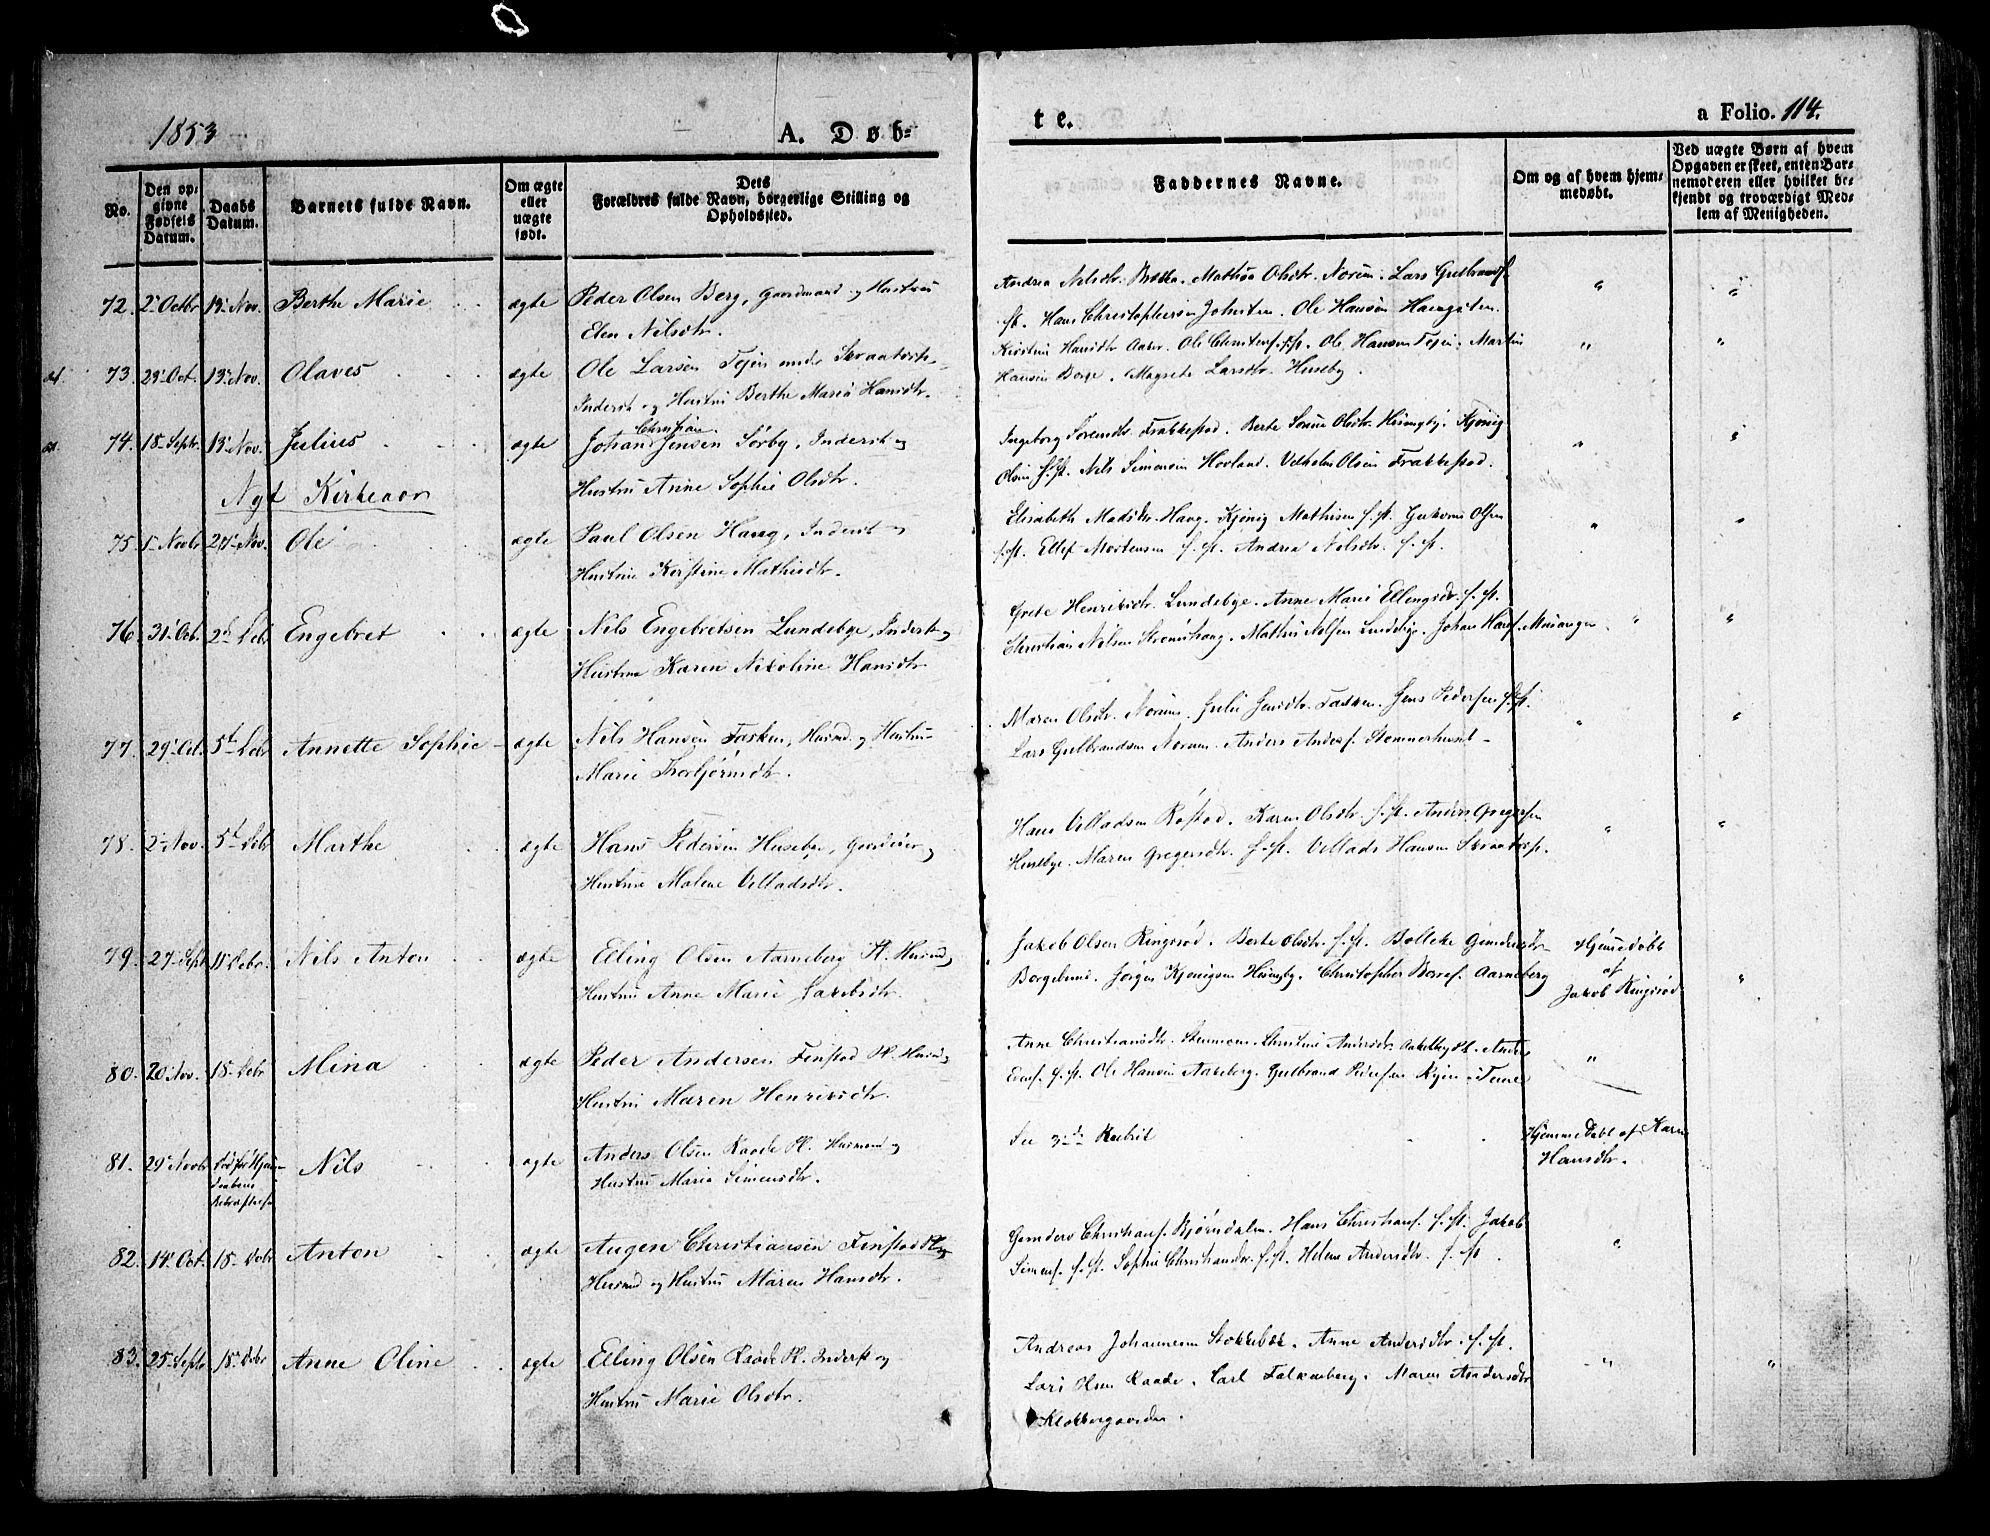 1853
A. Døb-
te.
a Folio. 114.
No.
Den op-
givne
Fødsels
Datum.
Daabs
Datum.
Barnets fulde Navn.
Om ægte
eller
uægte
født.
Dets
Forældres fulde Navn, borgerlige Stilling og
Opholdssted.
Faddernes Navne.
Om og af hvem hjem-
medøbt.
Ved uægte Børn af hvem
Opgaven er skeet, enten Bar-
nemoderen eller hvilket be-
kjendt og troværdigt Med-
lem af Menigheden.
72. 2' Octbr 13' Nov. Berthe Marie ægte Peder Olsen Berg, Gaardmand og Hustru
Elen Nilsdtr.
Andrea Nilsdtr. Mathea Olsdtr. Norum. Lars Gulbrands.
st. Hans Christophersen Johnsten. Ole Hansen
73. 29' Oct. 13' Nov. Olaves ægte Ole Larsen Tejen under
Inderst og Hustru Berthe Maria Hansdtr.
Kirstine Hansdtr Ole Christens. f. st. Ole Hansen Tejen. Martin
Hansen Borge. Magrete Larsdtr. Huseby.
74. 18' Septr. 13' Nov. Julius ægte Johan Christian Jensen Sørby, Inderst og
Hustru Anne Sophie Olsdtr.
Ingeborg Sørensdtr. Frakkestad. Berte Olsdtr. Kjønig
Olsen f. st. Nils Simensen Hovland. Vilhelm Olsen Frakkestad.
Nyt Kirkeaar
75. 1' Novbr 27' Nov. Ole ægte Paul Olsen Haug, Inderst og
Hustrue Kirstine Mathisdtr.
Elisabeth Madsdtr. Haug. Kjønig Mathisen f. st. Olsen
f. st. Ellef Mortensen f. st. Andrea Nilsdtr. f. st.
76. 31' Oct. Engebret ægte Nils Engebretsen Lundebye, Inderst og
Hustrue Karen Nikoline Hansdtr
Grete Henriksdtr. Lundebye. Anne Marie Ellingsdr. f. st.
Christian Nilsen Mathis Nilsen Lundebye. Johan Hans.
77. 29' Oct. 5t Debr Annette Sophie ægte Nils Hansen Fasken, Husmd. og Hustrue
Marie Thorbjørnsdtr.
Maren Olsdtr. Norum. Julie Jensdtr. Fasken. Jens Pedersen f. st.
Lars Gulbrandsen Norum. Anders Anders.
78. 2' Nov. 5t Debr Marthe ægte Hans Pedersen Husebye, Gaardeier og
Hustrue Malene Villadsdtr.
Hans Villadsen Røstad. Karen Olsdtr. f. st. Anders Gregersen
Husebye. Maren Gregersdtr. f. st. Villads Hansen
79. 27' Sept 11' Debr. Nils Anton ægte Elling Olsen Aarneberg Pl. Husmd. og
Hustru Anne Marie Jakobsdtr.
Jakob Olsen Ringsrød. Berte Olsdtr. f. st.
Borgelund. Jørgen Kjønigsen Christopher Aarneberg
Hjemmedøbt
af
Jakob Ringsrød
80. 20' Nov. 18' Debr Mina ægte Peder Andersen Finstad Pl. Husmd. og
Hustru Maren Henriksdtr.
Anne Christiansdtr. Christine Andersdtr.
f. st. Ole Hansen Gulbrand Pedersen
81. 29' Novbr Nils ægte Anders Olsen Raade Pl. Husmand og
Hustru Maria Simensdtr.
See 3die Rubrik
Hjemmedøbt af Karen
Hansdtr.
82. 14' Oct. 18' Debr Anton ægte Augen Christiansen Finstad Pl.
Husmd og Hustru Maren Hansdtr.
Christians. Bjørndalen. Hans Christians. f. st. Jakob
Simens. f. st. Sophie Christiansdtr. f. st. Helene Andersdtr. f. st.
83. 25' Septr 18' Debr Anne Oline ægte Elling Olsen Raade Pl. Inderst og
Hustru Marie Olsdtr.
Andreas Johannesen Stokkebæk. Anne Andersdtr. f. st.
Lars Olsen Raade. Carl Falkenberg. Maren Andersdtr
Klokkergaarden.